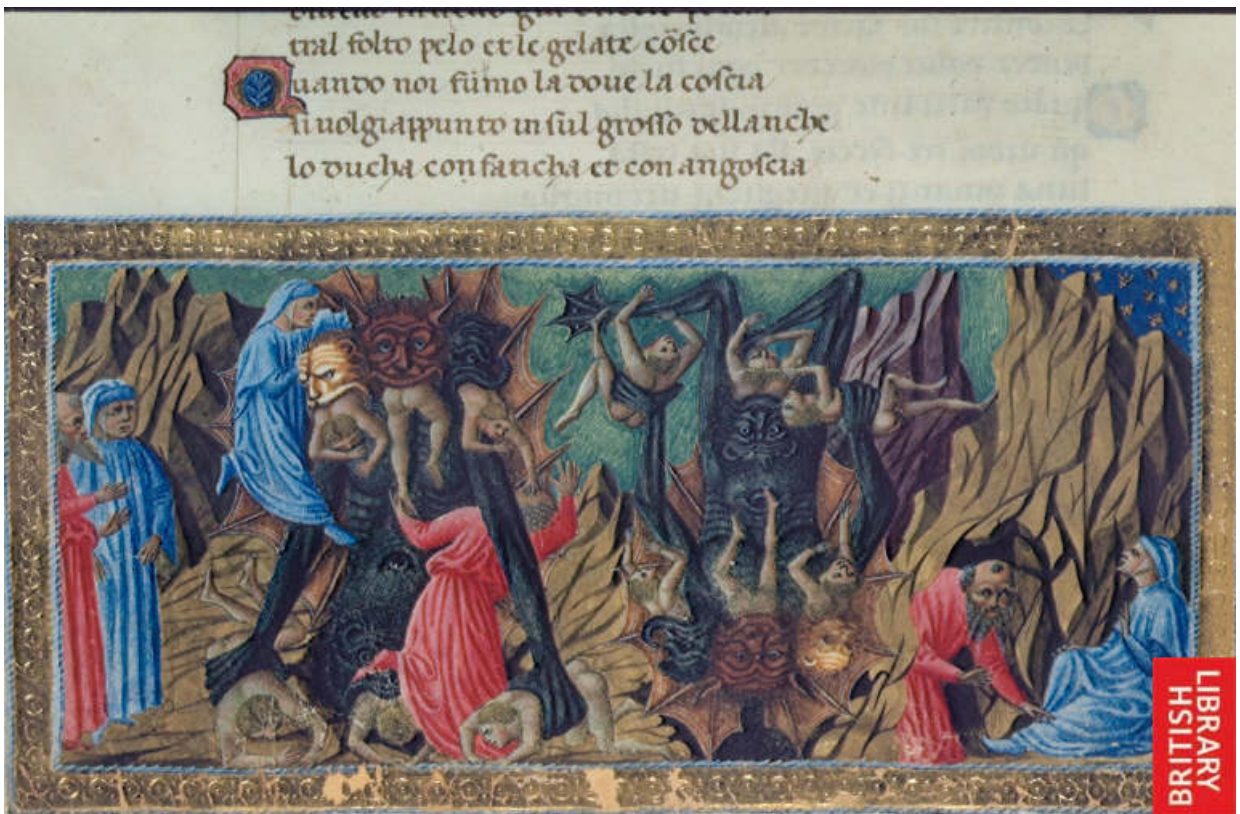 tral folto pelo et le gelate cōſce
Quando noi fūmo la doue la coſcia
ſi uolgiappunto inſul groſſo dellanche
lo ducha confaticha et con angoſcia
BRITISH
LIBRARY